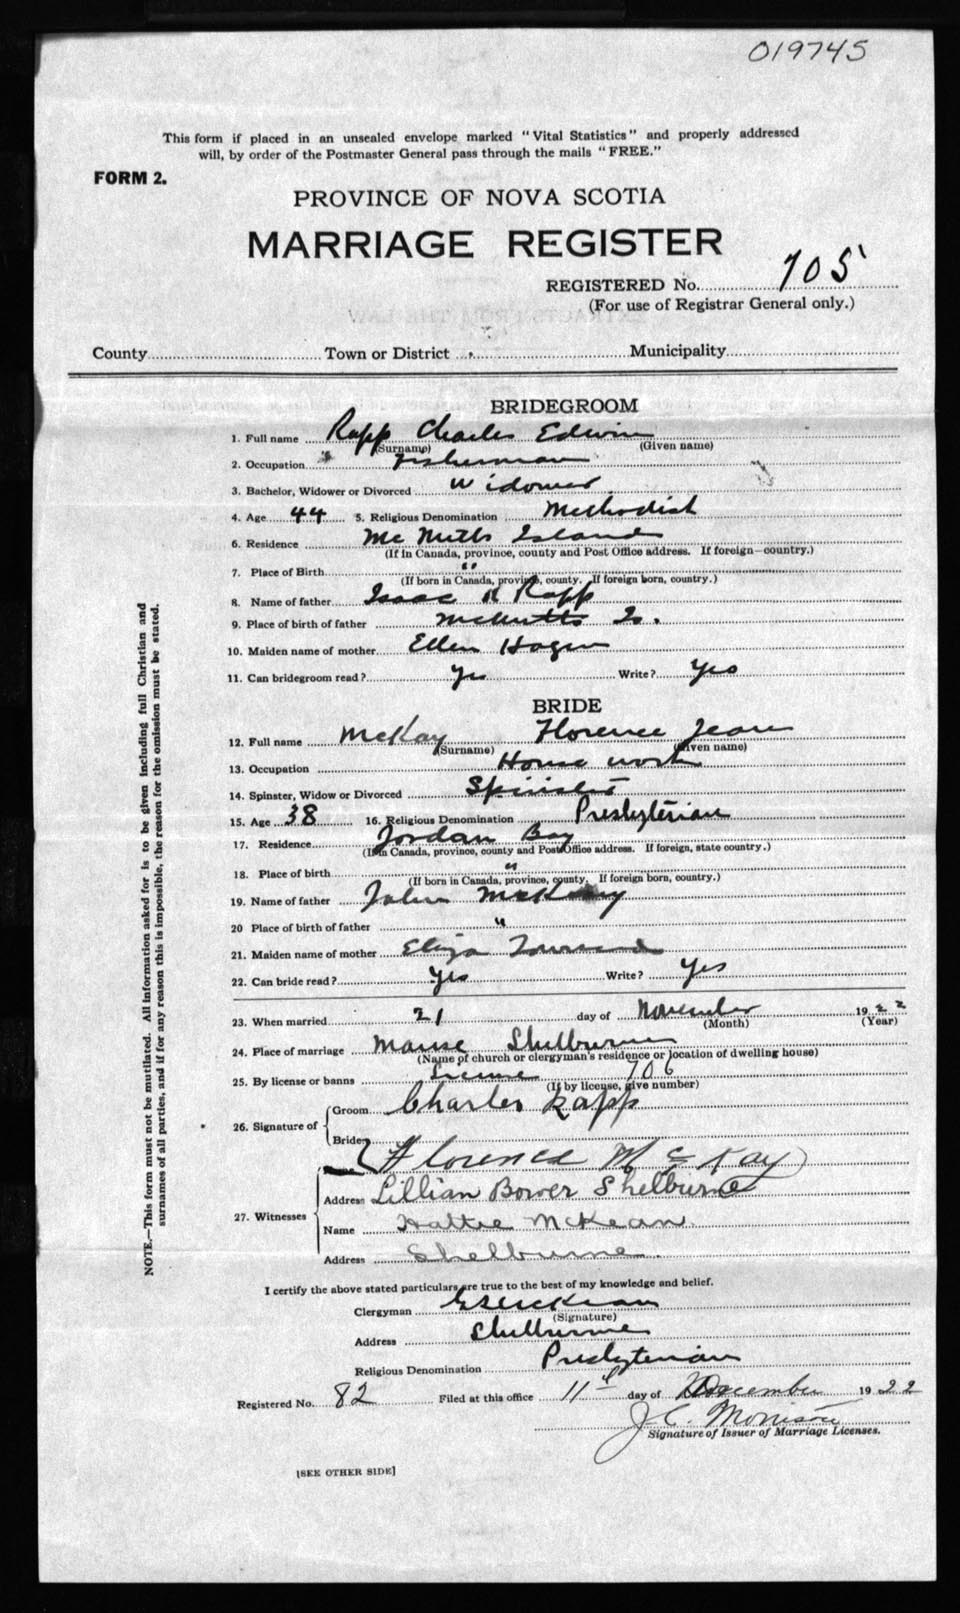 019745
This form if placed in an unsealed envelope marked "Vital Statistics" and properly addressed
will, by order of the Postmaster General pass through the mails "FREE."
FORM 2.
PROVINCE OF NOVA SCOTIA
MARRIAGE REGISTER
REGISTERED No. 705
(For use of Registrar General only.)
County Town or District Municipality
BRIDEGROOM
1. Full name Rapp Charles Edwin
(Surname) (Given name)
2. Occupation Fisherman
3. Bachelor, Widower or Divorced Widower
4. Age 44 5. Religious Denomination Methodist
6. Residence Mc Nutts Island
(If in Canada, province, county and Post Office address. If foreign—country.)
7. Place of Birth "
(If born in Canada, province, county. If foreign born, country.)
8. Name of father Isaac Rapp
9. Place of birth of father McNutts Is.
10. Maiden name of mother Ellen Hagen
11. Can bridegroom read? Yes Write? Yes
BRIDE
12. Full name McKay Florence Jean
(Surname) (Given name)
13. Occupation House work
14. Spinster, Widow or Divorced Spinster
15. Age 38 16. Religious Denomination Presbyterian
17. Residence Jordan Bay
(If in Canada, province, county and Post Office address. If foreign, state country.)
18. Place of birth "
(If born in Canada, province, county. If foreign born, country.)
19. Name of father John McKay
20 Place of birth of father "
21. Maiden name of mother Eliza Townsend
22. Can bride read? Yes Write? Yes
23. When married 21 day of November 1922
(Month) (Year)
24. Place of marriage Manse Shelburne
(Name of church or clergyman's residence or location of dwelling house)
25. By license or banns License 706
(If by license, give number)
26. Signature of Groom Charles Rapp
Bride Florence McKay
27. Witnesses
Address Lillian Bower Shelburne
Name Hattie McKean
Address Shelburne.
I certify the above stated particulars are true to the best of my knowledge and belief.
Clergyman
(Signature)
Address Shelburne
Religious Denomination Presbyterian
Registered No. 82 Filed at this office 11th day of December 1922
J. C. Morrison
Signature of Issuer of Marriage Licenses.
[SEE OTHER SIDE]
NOTE.—This form must not be mutilated. All information asked for is to be given including full Christian and
surnames of all parties, and if for any reason this is impossible, the reason for the omission must be stated.